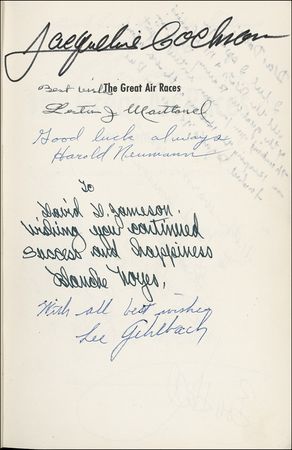 Jacqueline Cochran
Best wishes
The Great Air Races
Lester J. Maitland
Good luck always
Harold Neumann
To
David D. Jameson.
Wishing you continued
success and happiness
Blanche Noyes,
With all best wishes
Lee Gehlbach